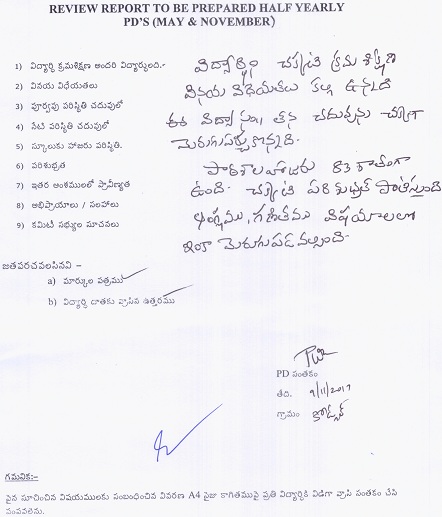 REVIEW REPORT TO BE PREPARED HALF YEARLY
PD'S (MAY & NOVEMBER)
1) విద్యార్థి క్రమశిక్షణ అందరి విద్యార్థులది.-
2) వినయ విధేయతలు
3) పూర్వపు పరిస్థితి చదువులో
4) నేటి పరిస్థితి చదువులో
5) స్కూలుకు హాజరు పరిస్థితి.
6) పరిశుభ్రత
7) ఇతర అంశములలో ప్రావీణ్యత
8) అభిప్రాయాలు / సలహాలు
9) కమిటీ సభ్యుల సూచనలు
విద్యార్థిని చక్కటి క్రమ శిక్షణ
వినయ విధేయతలు కల్గి ఉన్నది
ఈ విద్యా సం॥ తన చదువును చక్కగా
మెరుగుపర్చుకొన్నది.
పాఠశాల హాజరు 83 శాతంగా
ఉంది. చక్కటి పరిశుభ్రత పాటిస్తుంది
ఆంగ్లము, గణితము విషయాలలో
ఇంకా మెరుగుపడవల్సింది.
జతపరచవలసినవి –
a) మార్కుల పత్రము
b) విద్యార్థి దాతకు వ్రాసిన ఉత్తరము
PD సంతకం
తేది. 9/11/2017
గ్రామం
గమనిక:-
పైన సూచించిన విషయములకు సంబంధించిన వివరణ A4 సైజు కాగితముపై ప్రతి విద్యార్థికి విడిగా వ్రాసి సంతకం చేసి
పంపవలెను.